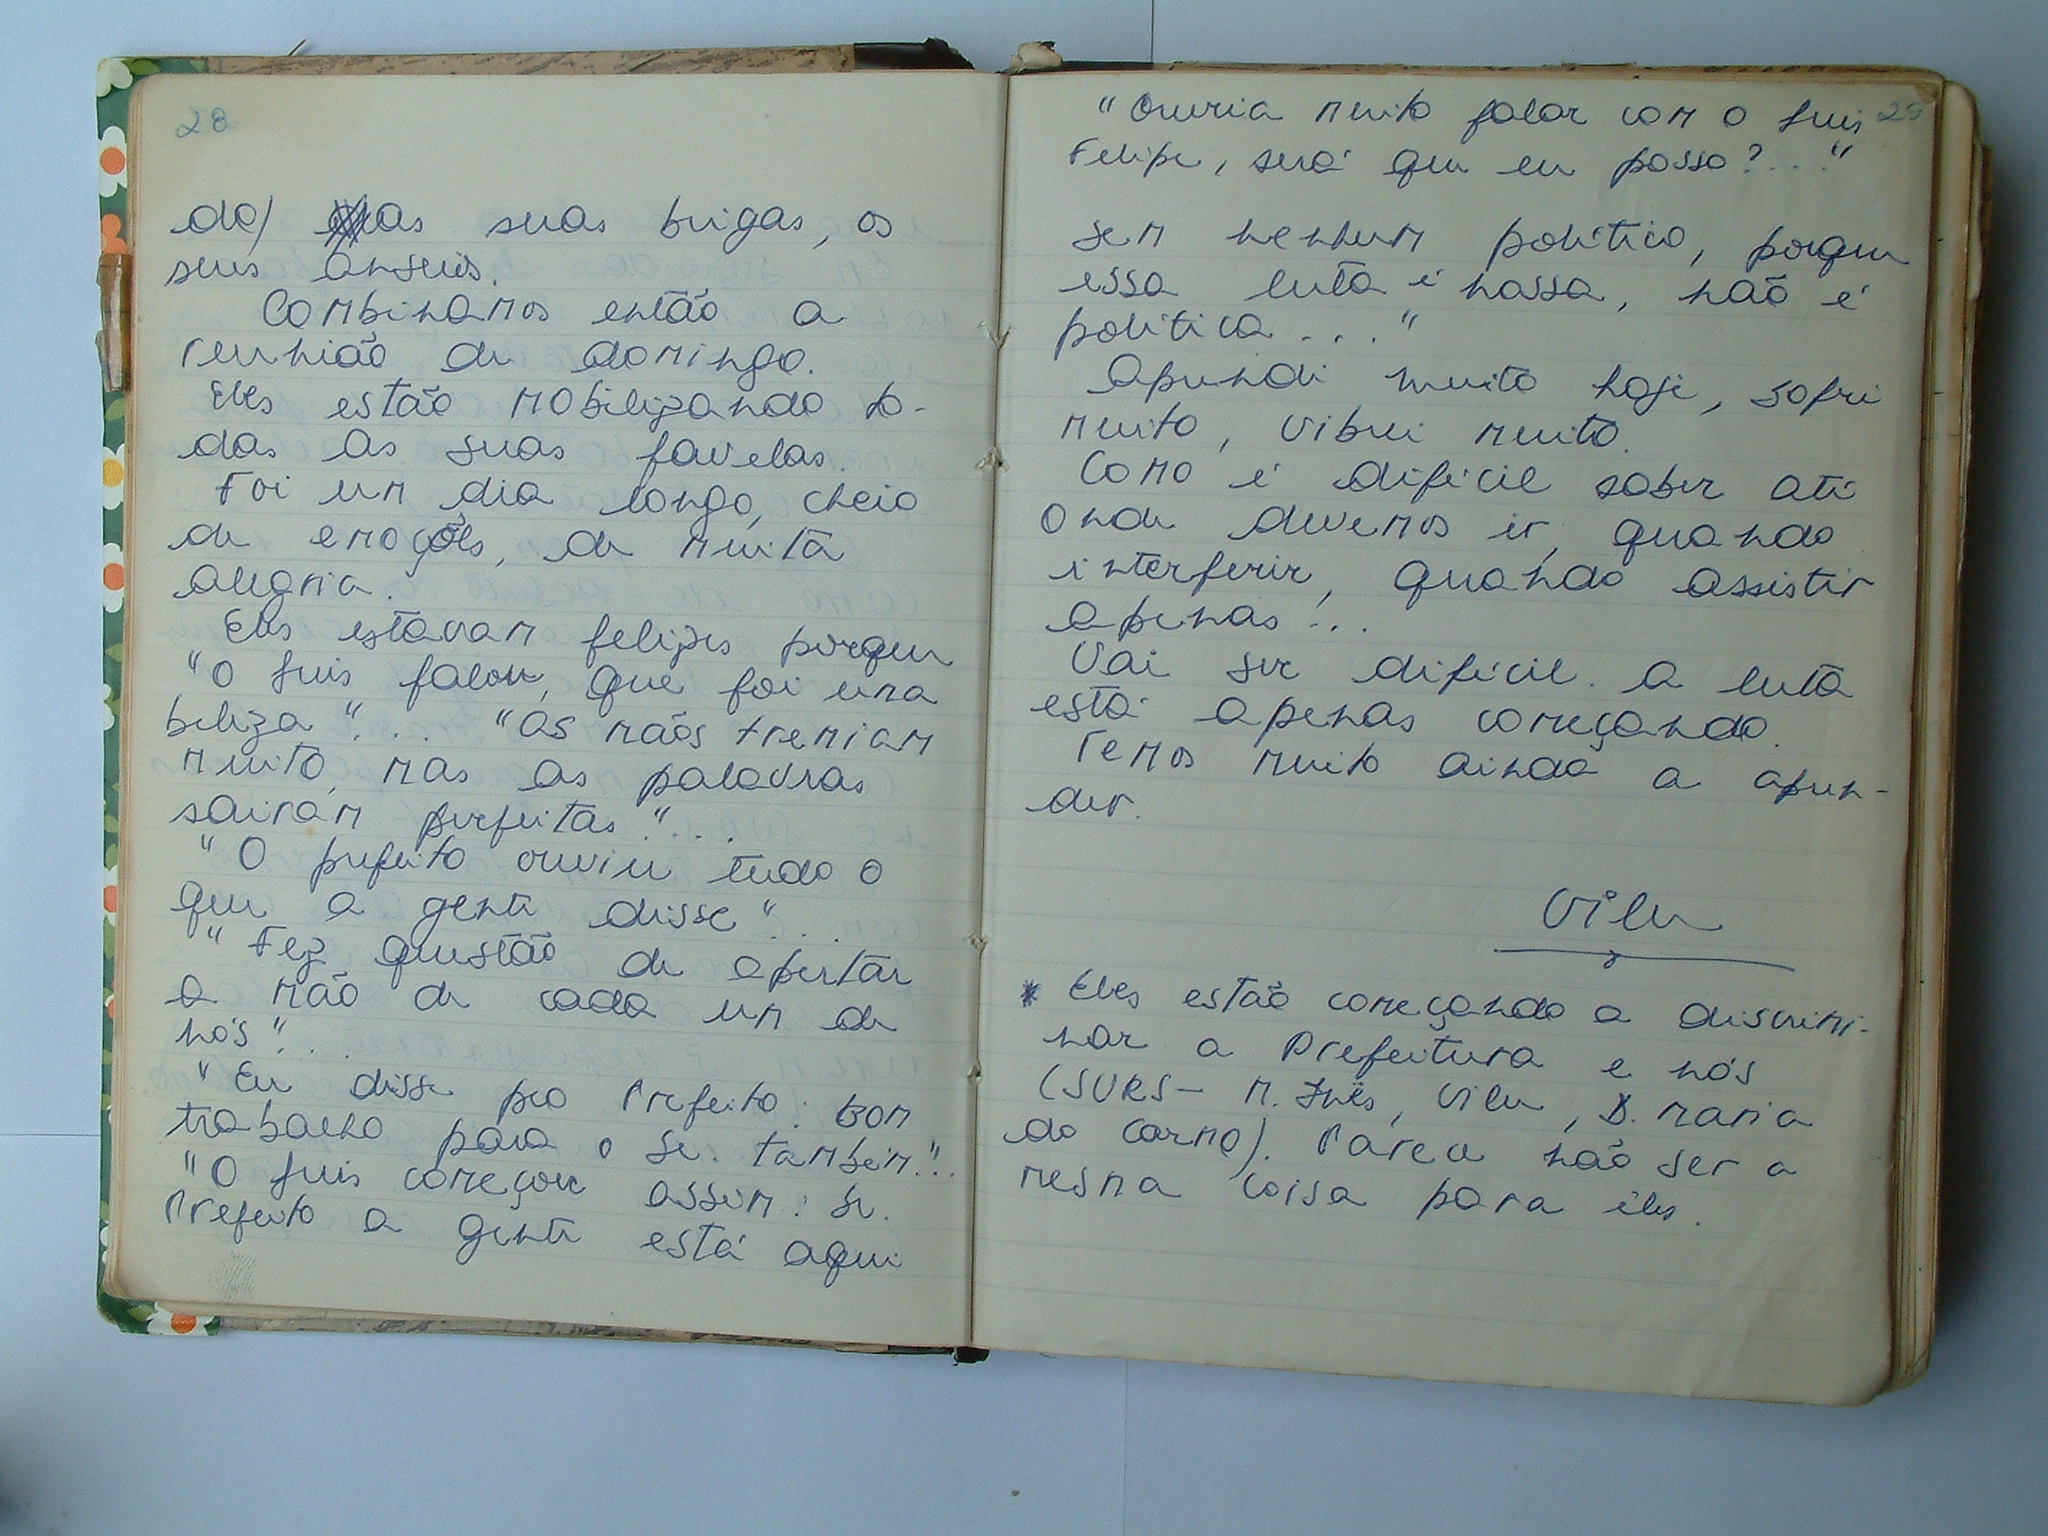 28
do) as suas brigas, os
seus anseis.
Combinamos então a
reunião de domingo.
Eles estão mobilizando to-
das as suas favelas.
Foi um dia longo, cheio
de emoções, de muita
alegria.
Eles estavam felizes porque
"O Luis falou, que foi uma
beleza"... "As mãos tremiam
muito, mas as palavras
sairam perfeitas"...
"O prefeito ouviu tudo o
que a gente disse"...
"Fez questão de apertar
a mão de cada um de
nós"...
"Eu disse pro Prefeito: bom
trabalho para o Sr. também"...
"O Luis começou assim: Sr.
Prefeito a gente está aqui
29
"Queria muito falar com o Luis
Felipe, será que eu posso?..."
sem nenhum político, porque
essa luta é nossa, não é
política..."
Aprendi muito hoje, sofri
muito, vibrei muito.
Como é difícil saber até
onde devemos ir, quando
interferir, quando assistir
apenas...
Vai ser difícil. A luta
está apenas começando.
Temos muito ainda a apren-
der.
Vilu
* Eles estão começando a discrimi-
nar a Prefeitura e nós
(SURS - M. Inês, Vilu, D. Maria
do Carmo). Parece não ser a
mesma coisa para êles.